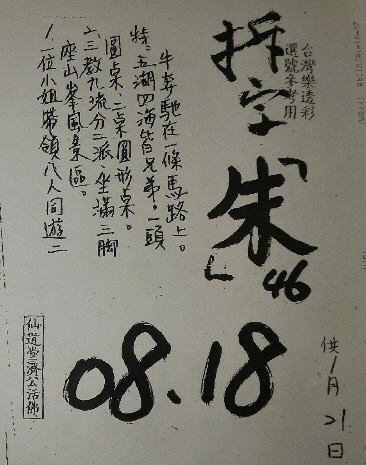 台灣樂透彩
選號參考用
拆字
「朱」46
08.18
供1月21日
1、一位小姐帶領八人同遊二
座山峯風景區。
2、三教九流分二派,坐滿三脚
圓桌,二桌圓形桌。
特、五湖四海皆兄弟,一頭
牛奔馳在一條馬路上。
仙道堂三濟公活佛